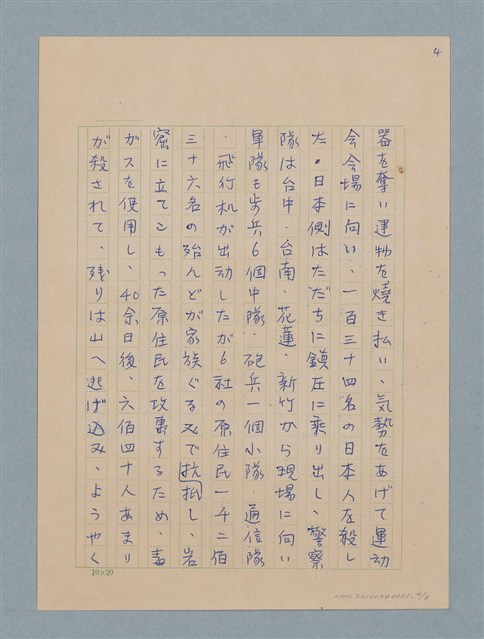 4
器を奪い運物を焼き払い、気勢をあげて運動
会会場に向い、一百三十四名の日本人を殺し
た。日本側はただちに鎮圧に乗り出し、警察
隊は台中・台南・花蓮・新竹から現場に向い
軍隊も歩兵6個中隊・砲兵一個小隊・通信隊
・飛行机が出动したが6社の原住民一千二佰
三十六名の殆んどが家族ぐるみで抗抵し、岩
窟に立てこもった原住民を攻撃するため、毒
ガスを使用し、40余日後、六佰四十人あまり
が殺されて、残りは山へ逃げ込み、ようやく
10×20